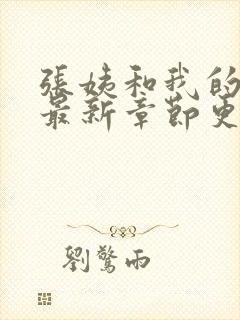 張姨和我的
最新章節更
劉驚雨